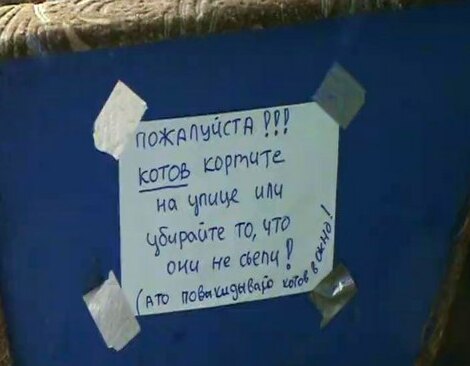 ПОЖАЛУЙСТА !!!
КОТОВ кормите
на улице или
убирайте то, что
они не сьели !
(А то повыкидываю котов в окно!